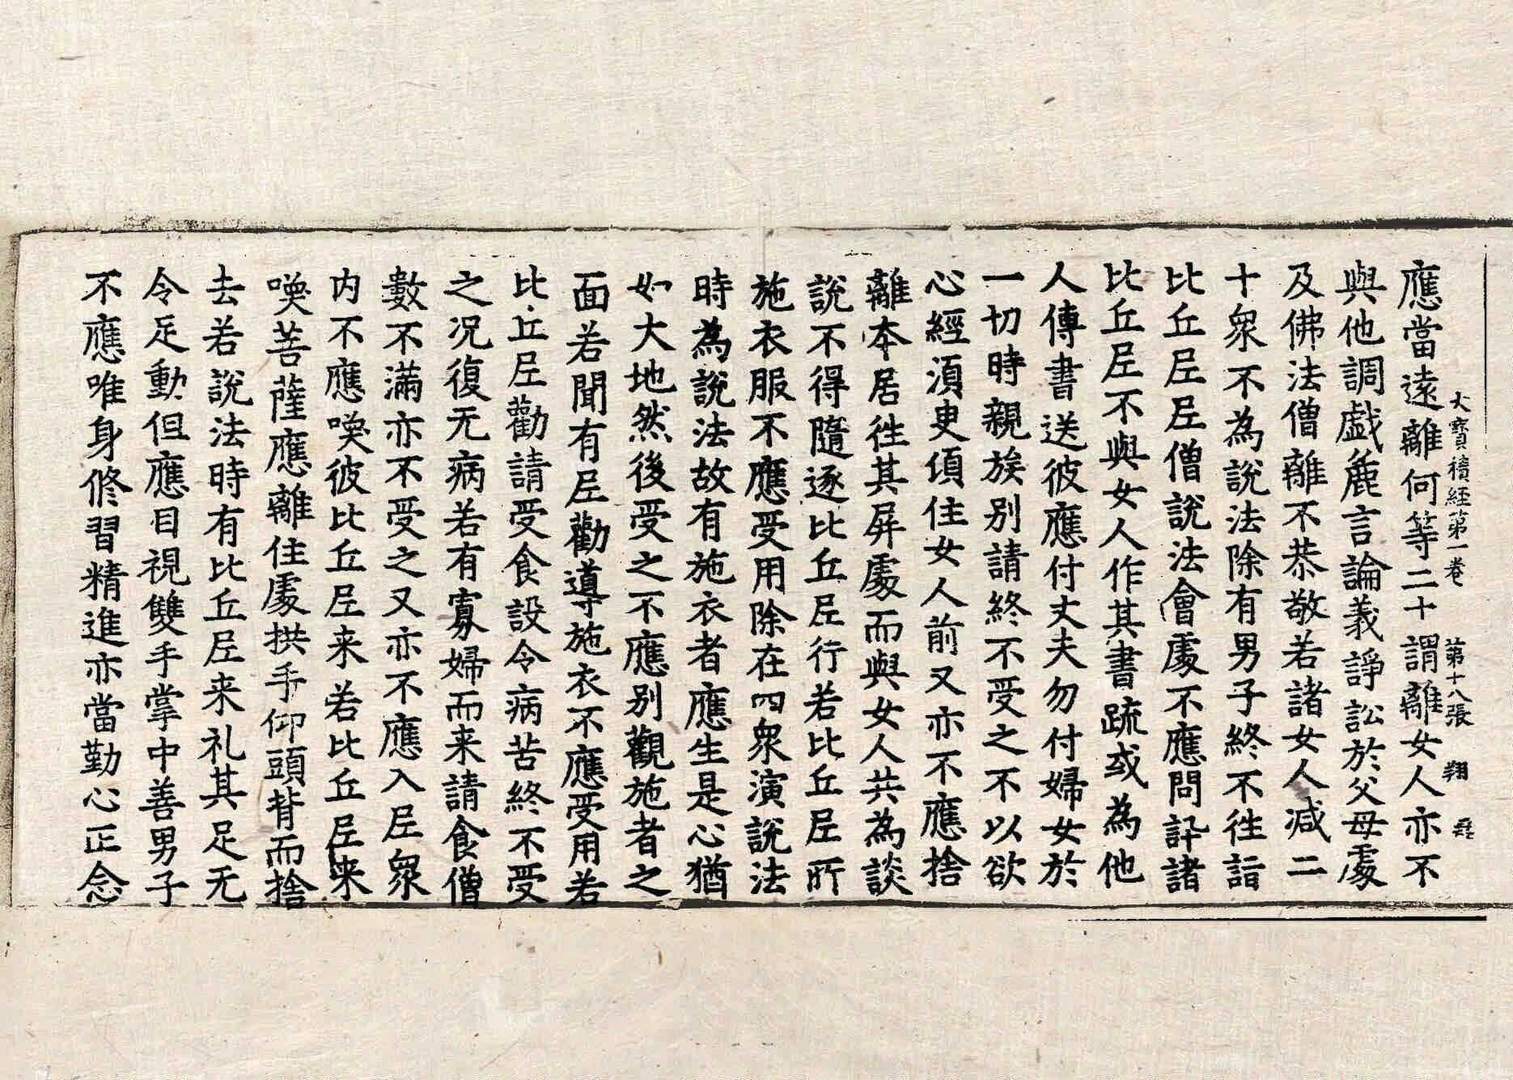 大寶積經第一卷 第十八張 翔
應當遠離何等二十謂離女人亦不
與他調戲麁言論義諍訟於父母處
及佛法僧離不恭敬若諸女人減二
十衆不為說法除有男子終不徃詣
比丘尼尼僧說法會處不應問訊諸
比丘尼不與女人作其書疏或為他
人傳書送彼應付丈夫勿付婦女於
一切時親族別請終不受之不以欲
心經須臾頃住女人前又亦不應捨
離本居徃其屏處而與女人共為談
說不得隨逐比丘尼行若比丘尼所
施衣服不應受用除在四衆演說法
時為說法故有施衣者應生是心猶
如大地然後受之不應別觀施者之
面若聞有尼勸導施衣不應受用若
比丘尼勸請受食設令病苦終不受
之况復无病若有寡婦而来請食僧
數不滿亦不受之又亦不應入尼衆
内不應喚彼比丘尼来若比丘尼来
喚菩薩應離住處拱手仰頭背而捨
去若說法時有比丘尼来礼其足无
令足動但應目視雙手掌中善男子
不應唯身修習精進亦當勤心正念